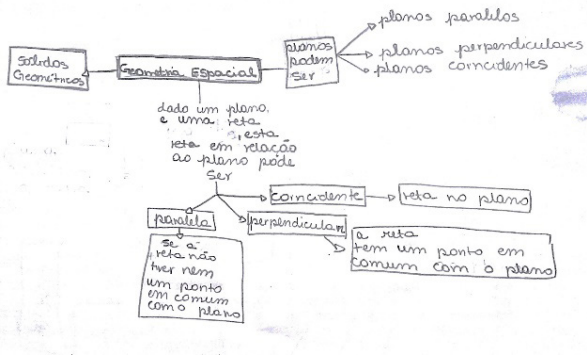 Sólidos
Geométricos
Geometria Espacial
planos
podem
ser
planos paralelos
planos perpendiculares
planos coincidentes
dado um plano,
e uma reta
, esta
reta em relação
ao plano pode
ser
coincidente
reta no plano
paralela
perpendicular
se a
reta não
tiver nem
um ponto
em comum
com o plano
a reta
tem um ponto em
comum com o plano